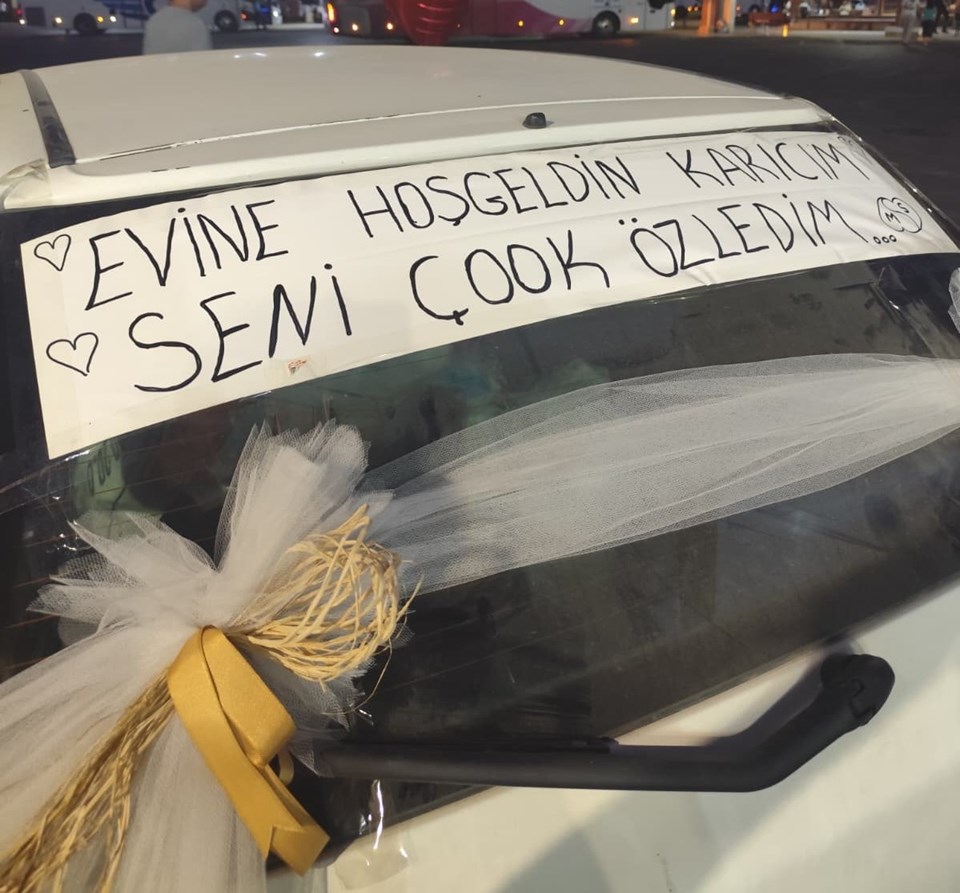 EVİNE HOŞGELDİN KARICIM
SENİ ÇOOK ÖZLEDİM...
M S